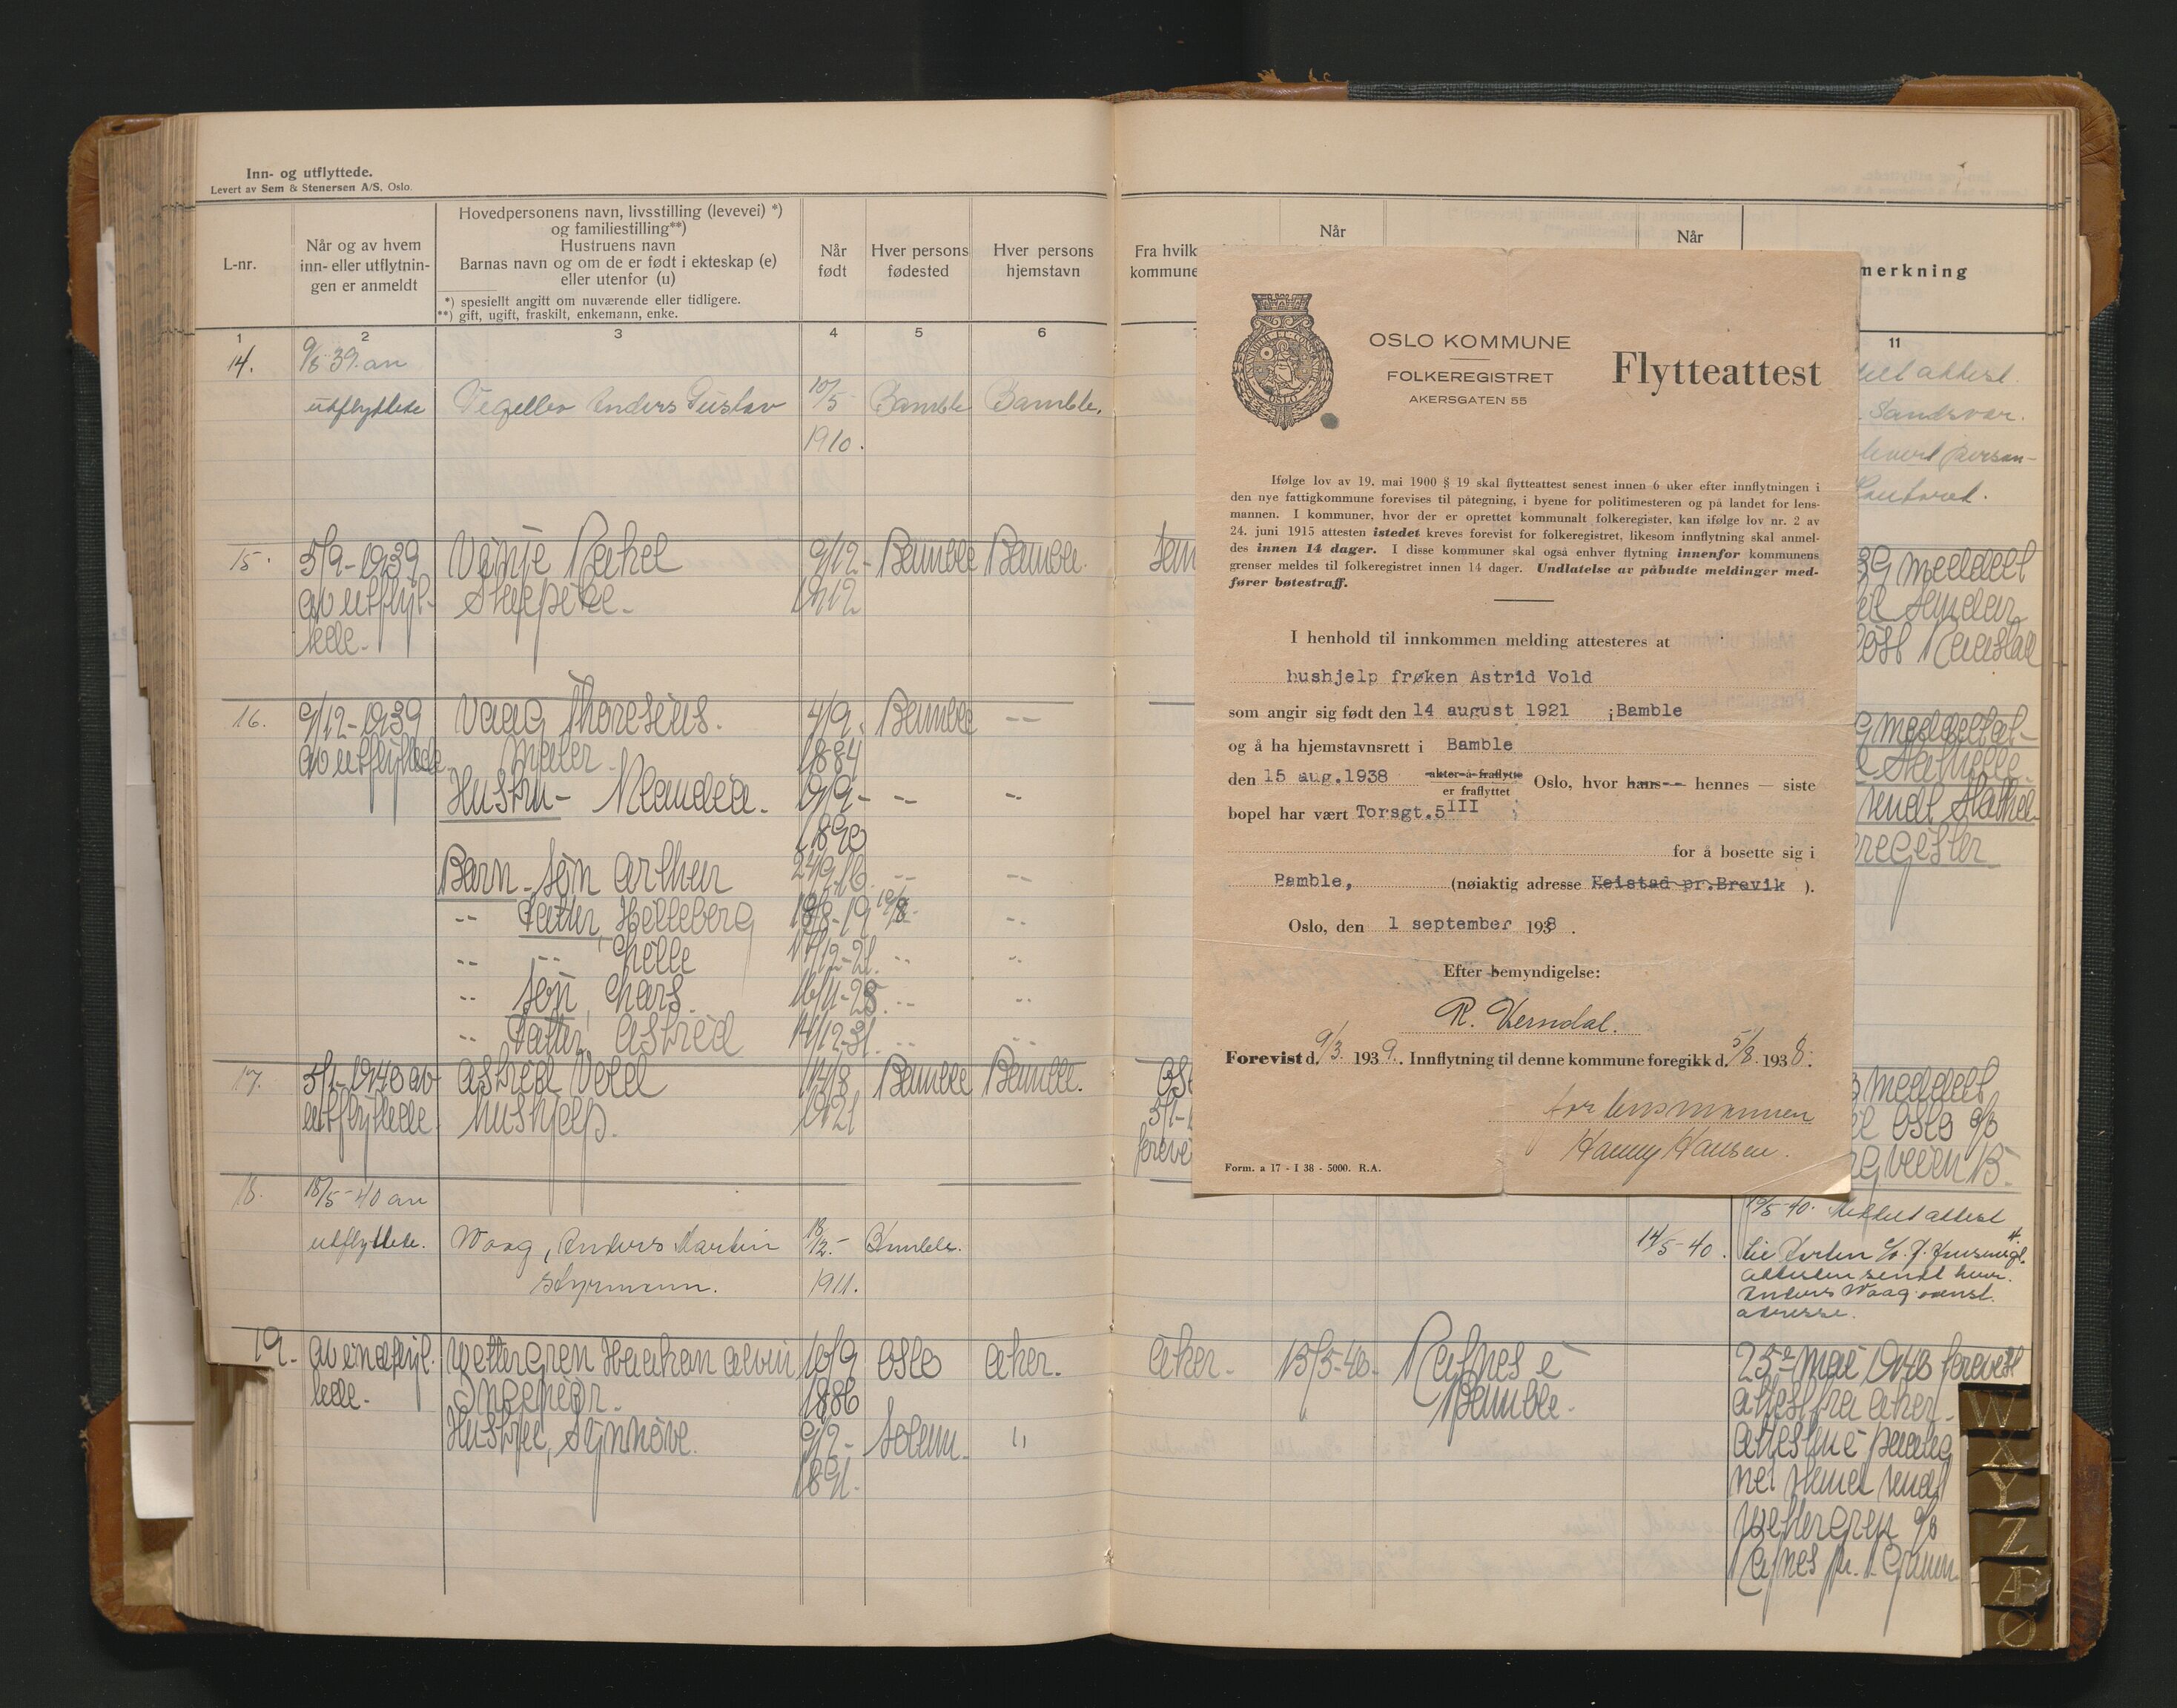 Inn- og utflyttede.
Levert av Sem & Stenersen A/S, Oslo.
L-nr.
Når og av hvem
inn- eller utflytnin-
gen er anmeldt
Hovedpersonens navn, livsstilling (levevei) *)
og familiestilling**)
Hustruens navn
Barnas navn og om de er født i ekteskap (e)
eller utenfor (u)
*) spesielt angitt om nuværende eller tidligere.
**) gift, ugift, fraskilt, enkemann, enke.
Når
født
Hver persons
fødested
Hver persons
hjemstavn
1 2 3 4 5 6
14. 9/5 39. an
utflyttede Anders Gustav 10/5 Bamble Bamble.
1910.
15. 5/9-1939 Rakel 9/12- Bamble Bamble.
av utflyt- 1912
tede-
16. 9/12-1939 Vaag Thoresius. 4/9. Bamble --
av utflyttede Maler 1884
Hustru- 19/9- -- --
1890
Barn - søn Arthur 24/9-16. -- --
-- Datter, Helleborg --
-- -- 17/12-21. -- --
-- søn, Lars. 16/11-28 -- --
-- Datter, Astrid 14/12-31. -- --
17. 5/1-1940 av Astrid Vold 14/8 Bamble Bamble.
utflyttede hushjelp. 1921
18. 18/5-40 an
utflyttede. Waag, Anders Martin 18/12.- Bamble.
styrmann. 1911.
19. av indflyt- Wettergren Haakan Alvin 10/9 Oslo Aker.
tede- Ingeniør. 1886
Hustru, Synnøve. 9/12- Solum- "
1891.
Fra hvilk
kommune
Når
Når
merkning
7
11
OSLO KOMMUNE
FOLKEREGISTRET
AKERSGATEN 55
Flytteattest
OSLO
Ifølge lov av 19. mai 1900 § 19 skal flytteattest senest innen 6 uker efter innflytningen i
den nye fattigkommune forevises til påtegning, i byene for politimesteren og på landet for lens-
mannen. I kommuner, hvor der er oprettet kommunalt folkeregister, kan ifølge lov nr. 2 av
24. juni 1915 attesten istedet kreves forevist for folkeregistret, likesom innflytning skal anmel-
des innen 14 dager. I disse kommuner skal også enhver flytning innenfor kommunens
grenser meldes til folkeregistret innen 14 dager. Undlatelse av påbudte meldinger med-
fører bøtestraff.
I henhold til innkommen melding attesteres at
hushjelp frøken Astrid Vold
som angir sig født den 14 august 1921 i Bamble
og å ha hjemstavnsrett i Bamble
den 15 aug.1938 akter å fraflytte
er fraflyttet Oslo, hvor hans -- hennes — siste
bopel har vært Torsgt.5III
for å bosette sig i
Bamble, (nøiaktig adresse Heistad pr.Brevik ).
Oslo, den 1 september 1938 .
Efter bemyndigelse:
R. Verndal.
Forevist d. 9/3. 1939. Innflytning til denne kommune foregikk d. 5/8. 1938.
for lensmannen
Hanny Hansen.
Form. a 17 - I 38 - 5000. R.A.
Sandsvær.
levert person-
39 meddelt
meddelt
til Oslo c/o
veien 15-
18/5-40. Meddelt attest
14/5-40. til Horten
attesten sendt herr
Anders Waag
adresse.
Aker- 15/5-40- Rafnes i 25de mai 1940 forevist
Bamble- attest fra Aker-
W
X
Y
Z
Æ
Ø